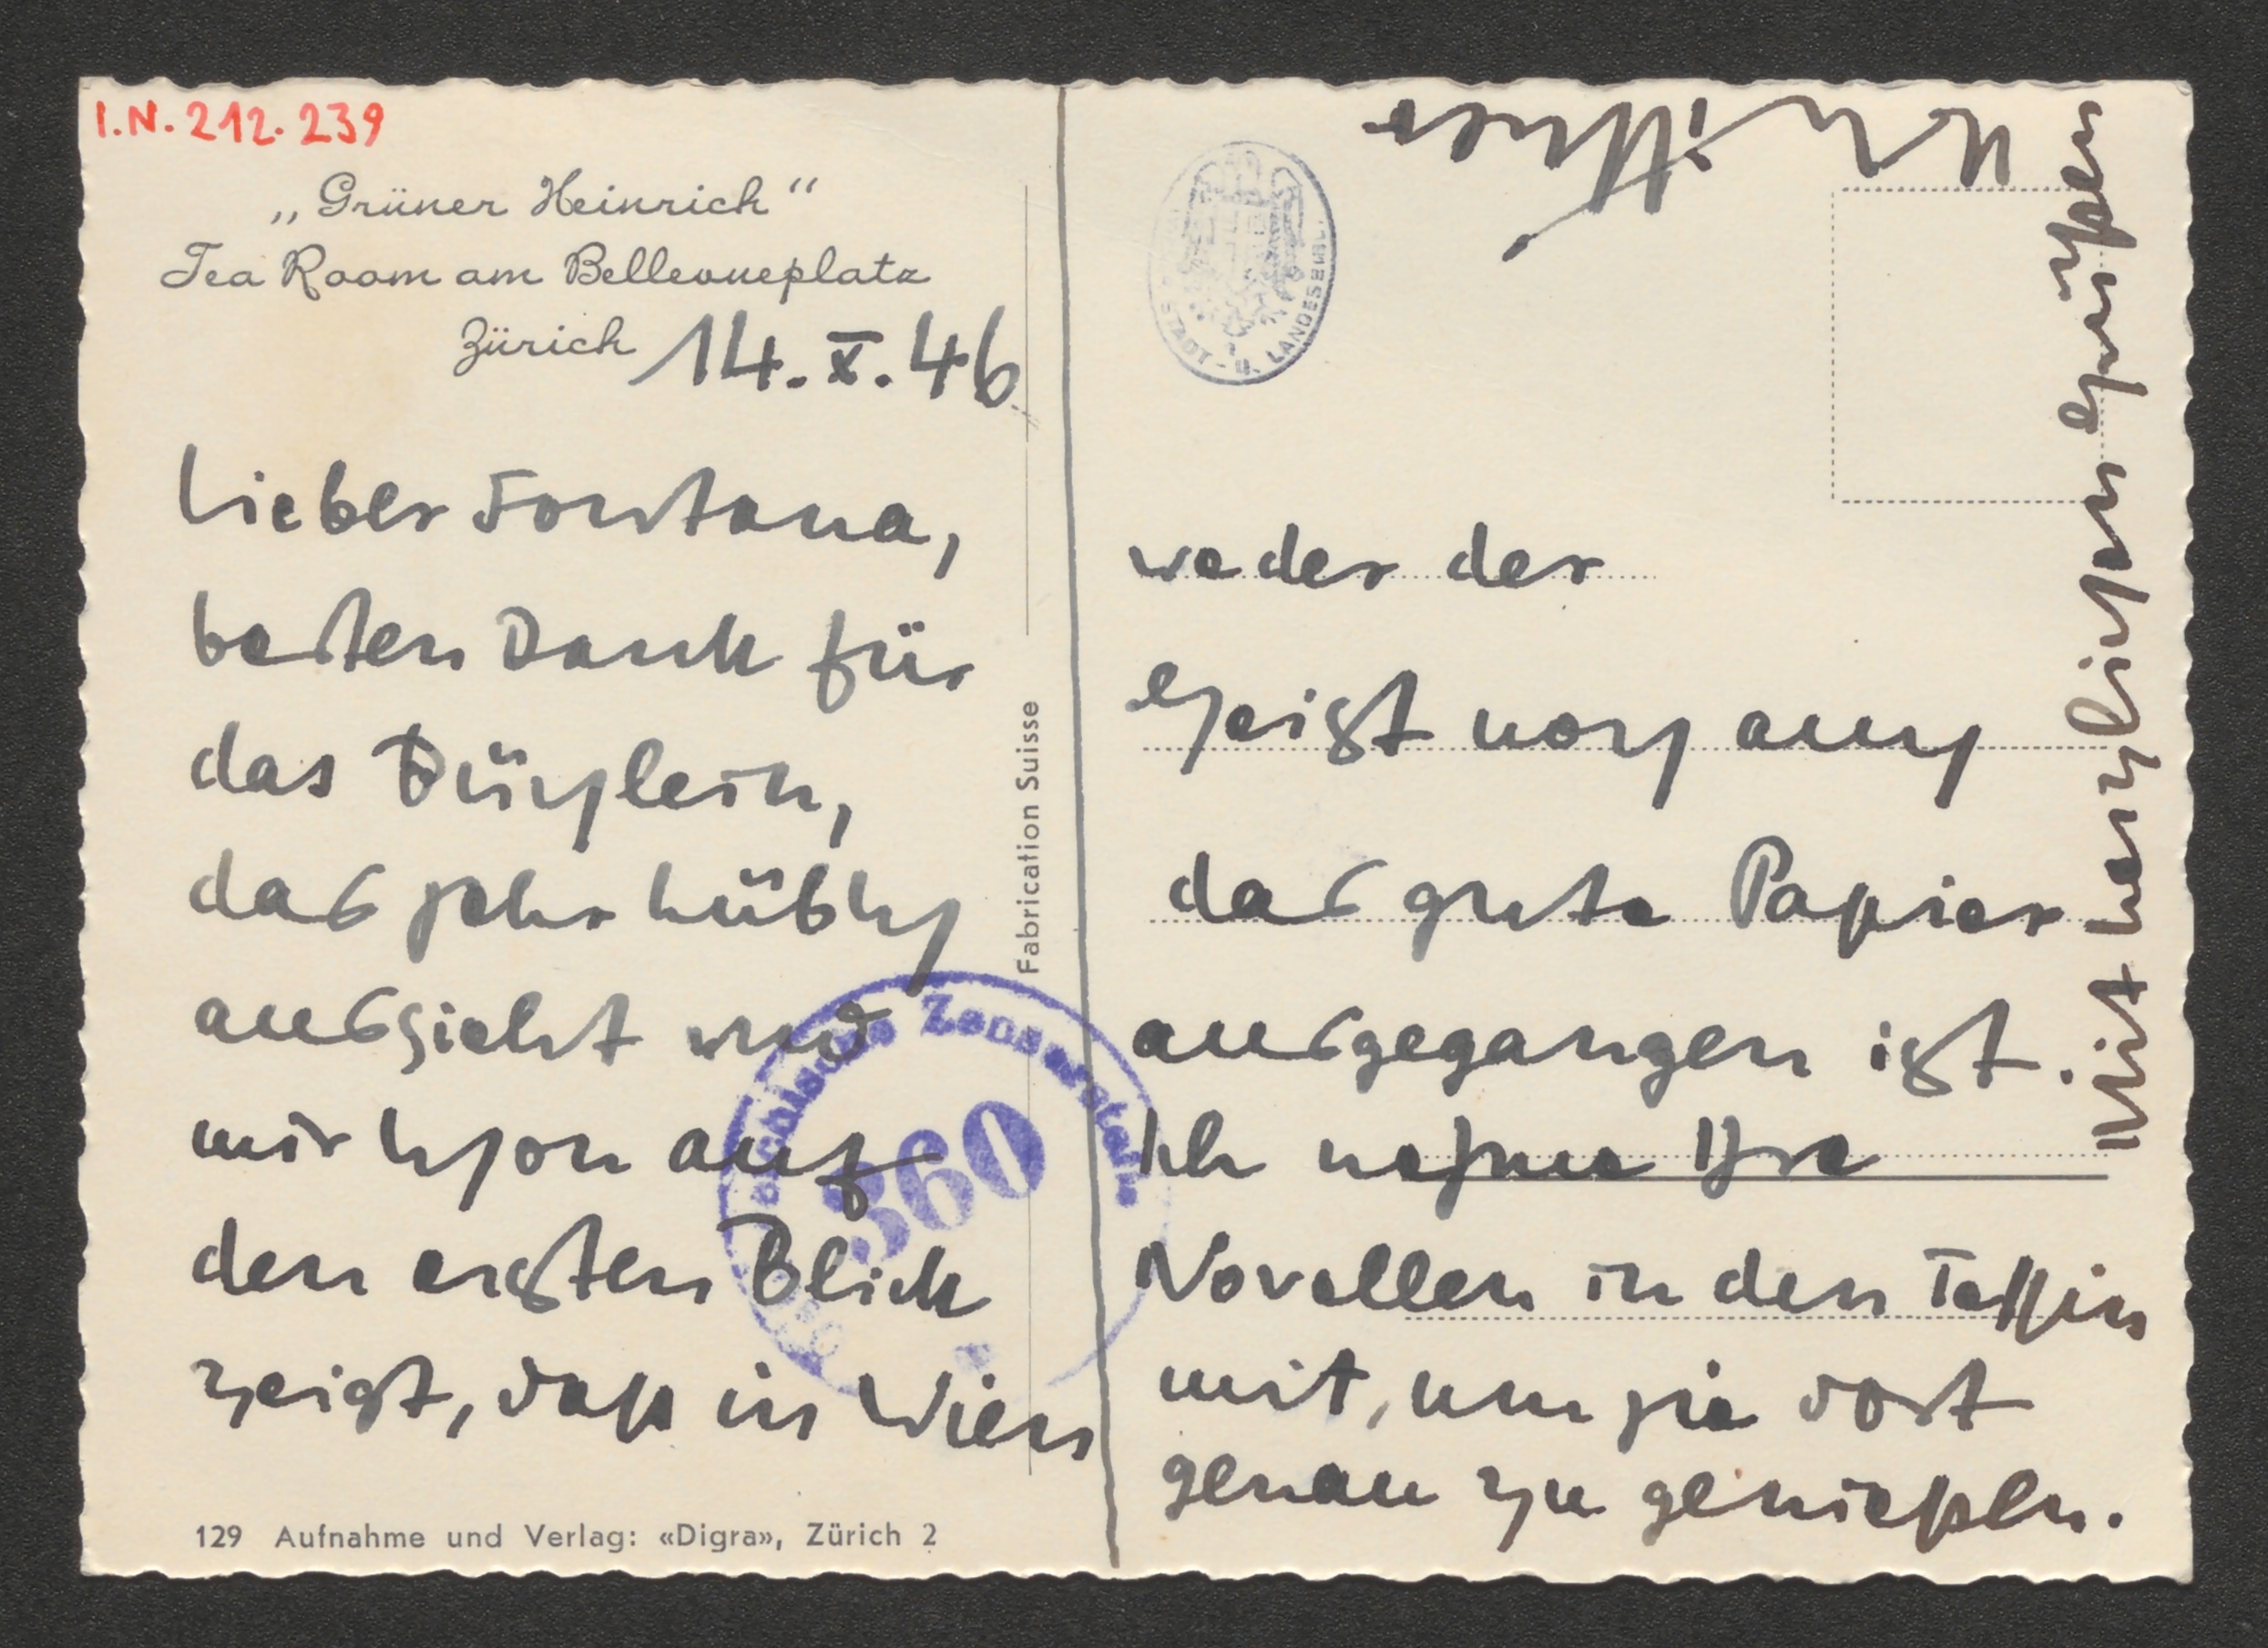 I.N. 212.239
„Grüner Heinrich“
Tea Room am Bellevueplatz
Zürich 14. X. 46
Lieber Fontana,
besten Dank für
das Büchlein,
das sehr hübsch
aussieht und
mir schon auf
den ersten Blick
zeigt, dass in Wien
129 Aufnahme und Verlag: «Digra», Zürich 2
Fabrication Suisse
Zensurstelle
360
STADT - U. LANDESBIBL.
weder der
Geist noch auch
das gute Papier
ausgegangen ist.
Ich nehme Ihre
Novellen in den Tessin
mit, um sie dort
genau zu geniessen.
Mit herzlichen Grüssen